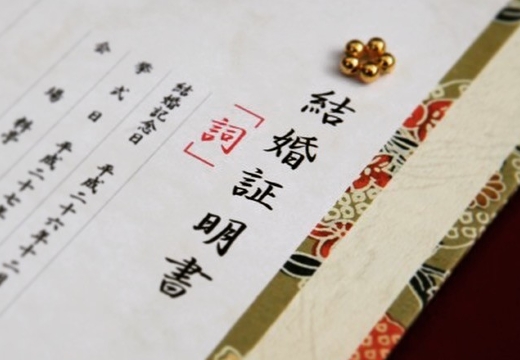 結婚証明書
「詞」
結婚記念日 平成二十六年十二月
挙式日 平成二十七年
会場 料亭